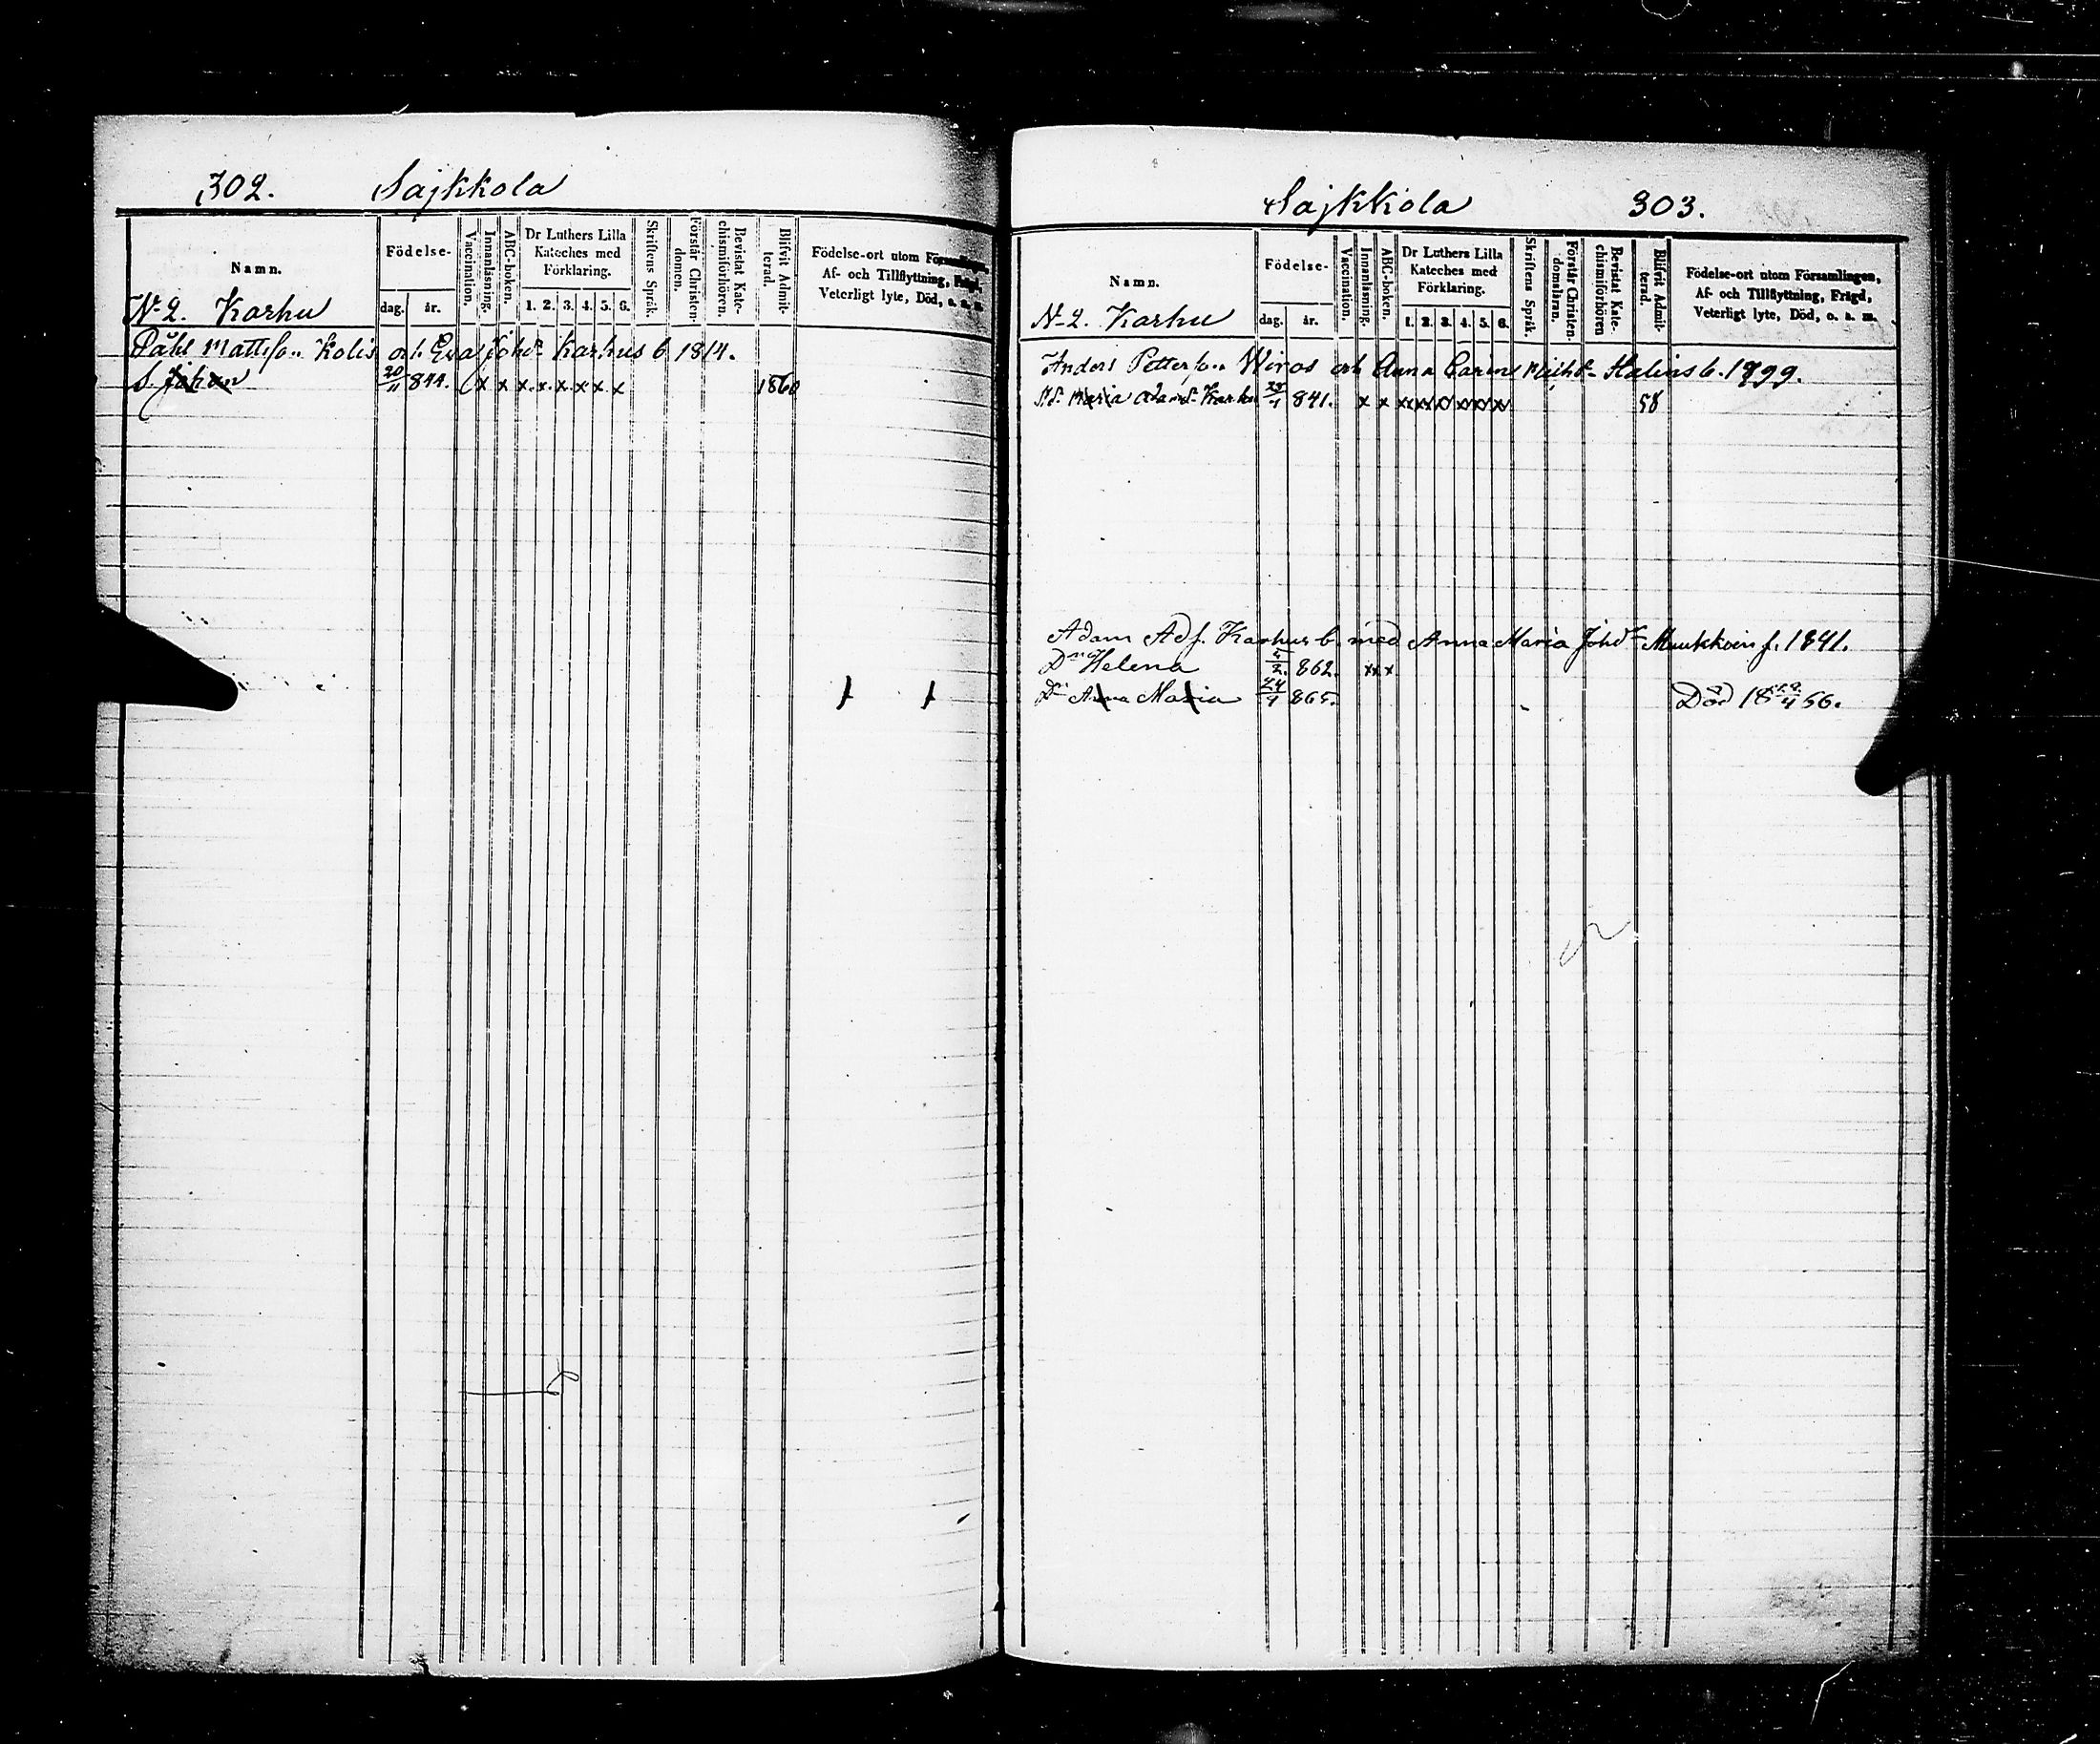 302. Sajkkola
Namn.
Födelse-
dag. år.
Vaccination.
Innanläsning.
ABC-boken.
Dr Luthers Lilla
Kateches med
Förklaring.
1. 2. 3. 4. 5. 6.
Skriftens Språk.
Förstår Christen-
domen.
Bevistat Kate-
chismiförhören.
Blifvit Admit-
terad.
Födelse-ort utom Församlingen,
Af- och Tillflyttning, Frägd,
Veterligt lyte, Död, o. s. m.
N-2. Karhu
Påhl Mattss.. Kolis och Eva Johd. Karhus b. 1814.
S. Johan 20/11 844. x x x x x x x x 1860
Sajkkola 303.
Namn.
Födelse-
dag. år.
Vaccination.
Innanläsning.
ABC-boken.
Dr Luthers Lilla
Kateches med
Förklaring.
1. 2. 3. 4. 5. 6.
Skriftens Språk.
Förstår Christen-
domsläran.
Bevistat Kate-
chismiförhören
Blifvit Admit-
terad.
Födelse-ort utom Församlingen,
Af- och Tillflyttning, Frägd,
Veterligt lyte, Död, o. s. m.
N-2. Karhu
Anders Petterss.. Wiros och Anna Carin b. 1799.
Maria Adamsd. Karhu 841. x x x x x x x x 58
Adam Adf. Karhus b. med Anna Maria Johd. f. 1841.
Dr Helena 862. x x x
Dr Anna Maria 24/4 865. Död 18 66.